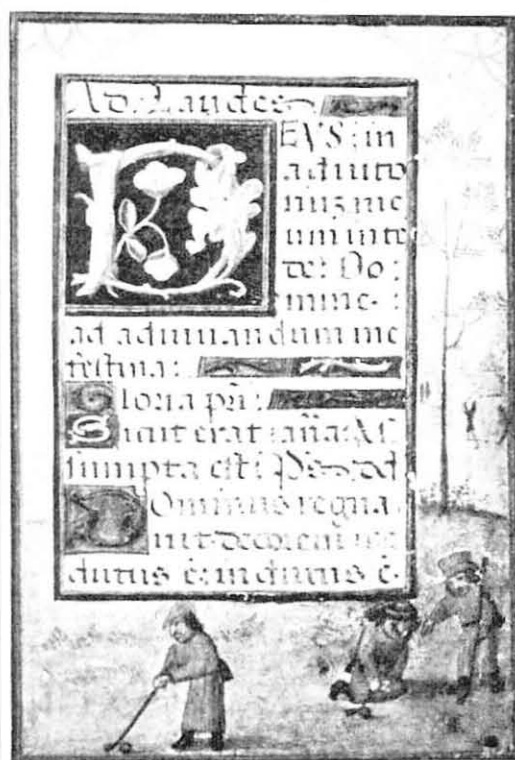 Ad. Laudes
DEVS: in
adiuto
riuz me
um inte
de: Do:
mine:
ad adiuuandum me
festina:
Gloria pri:
Sicut erat: aña: As
sumpta est: Ps.
Dominus regna
uit. decorem in
dutus ē: indutus ē.